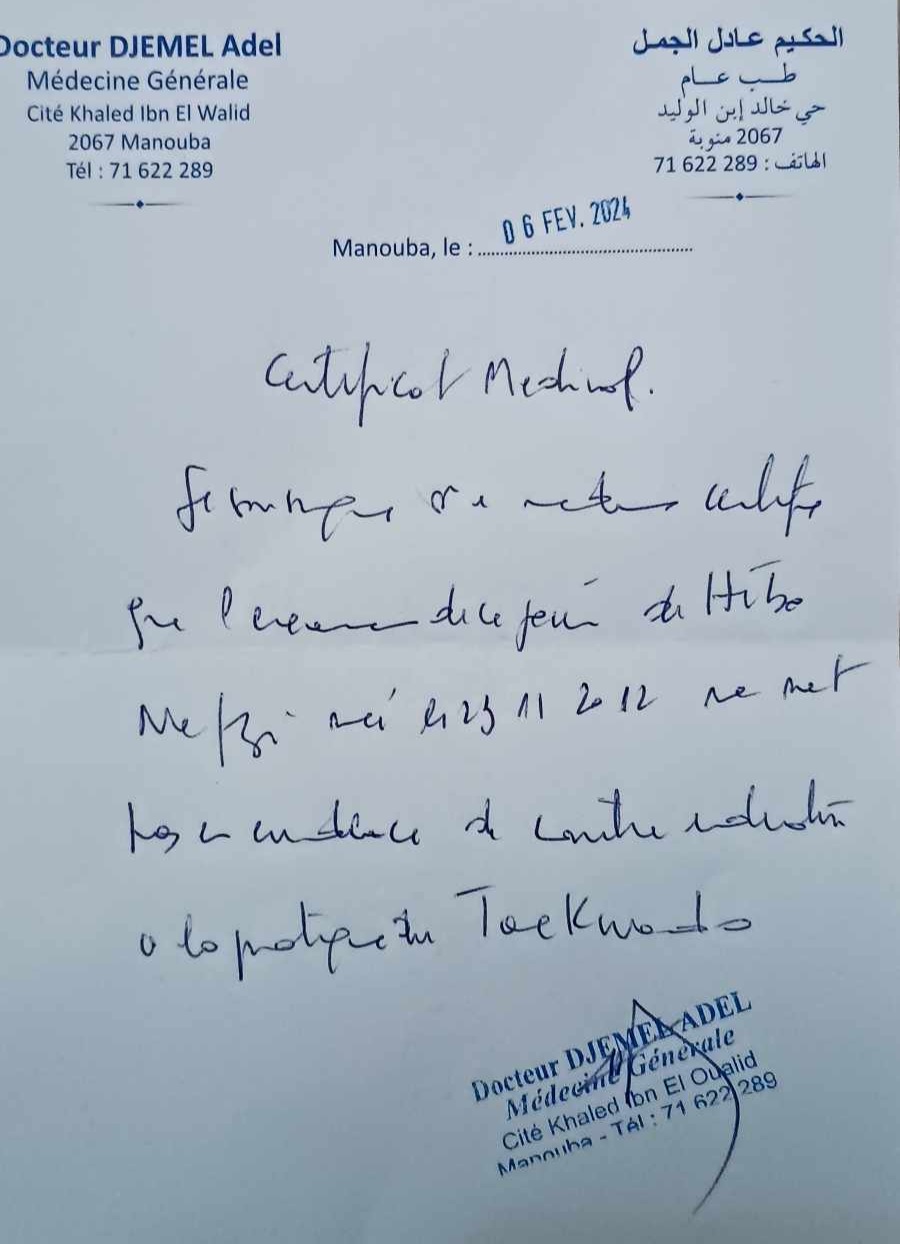 Docteur DJEMEL Adel
Médecine Générale
Cité Khaled Ibn El Walid
2067 Manouba
Tél : 71 622 289
الحكيم عادل الجمل
طب عام
حي خالد إبن الوليد
2067 منوبة
الهاتف : 289 622 71
Manouba, le : 06 FEV. 2024
Certificat Medical.
Je soussigné certifie
que l'examen de ce jour de Hiba
Nefzi née le 23 11 2012 ne met
pas en evidence de contre indication
a la pratique du Taekwondo
Docteur DJEMEL ADEL
Médecine Générale
Cité Khaled Ibn El Oualid
Manouba - Tél : 71 622 289